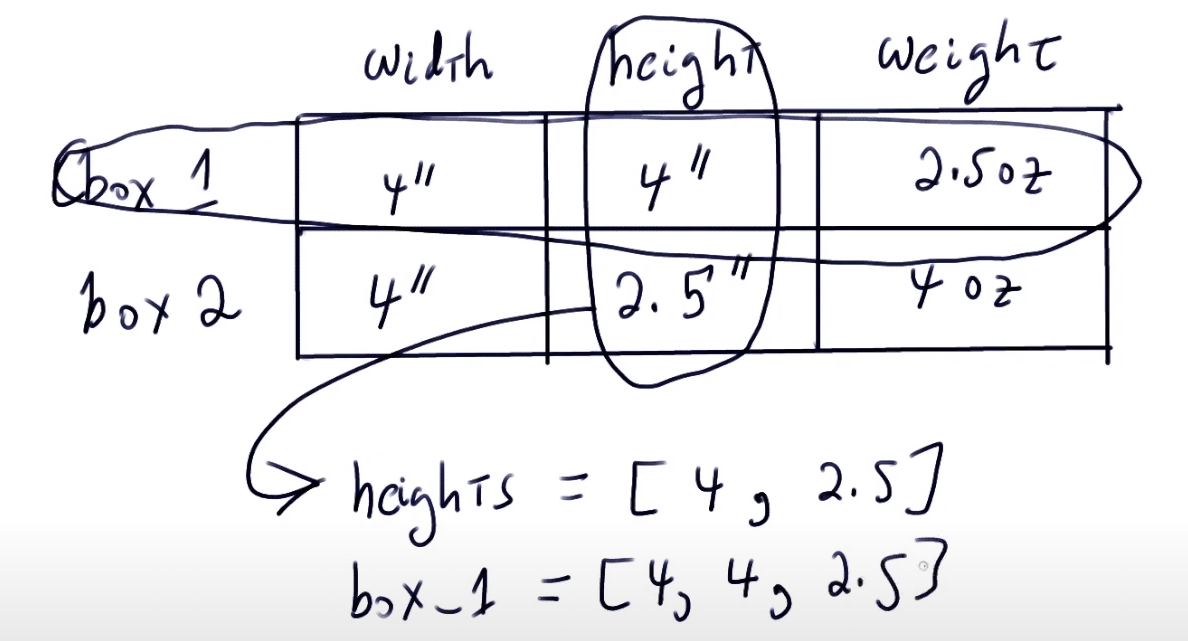 width height weight
box 1 4" 4" 2.5oz
box 2 4" 2.5" 4 oz
heights = [4, 2.5]
box_1 = [4, 4, 2.5]